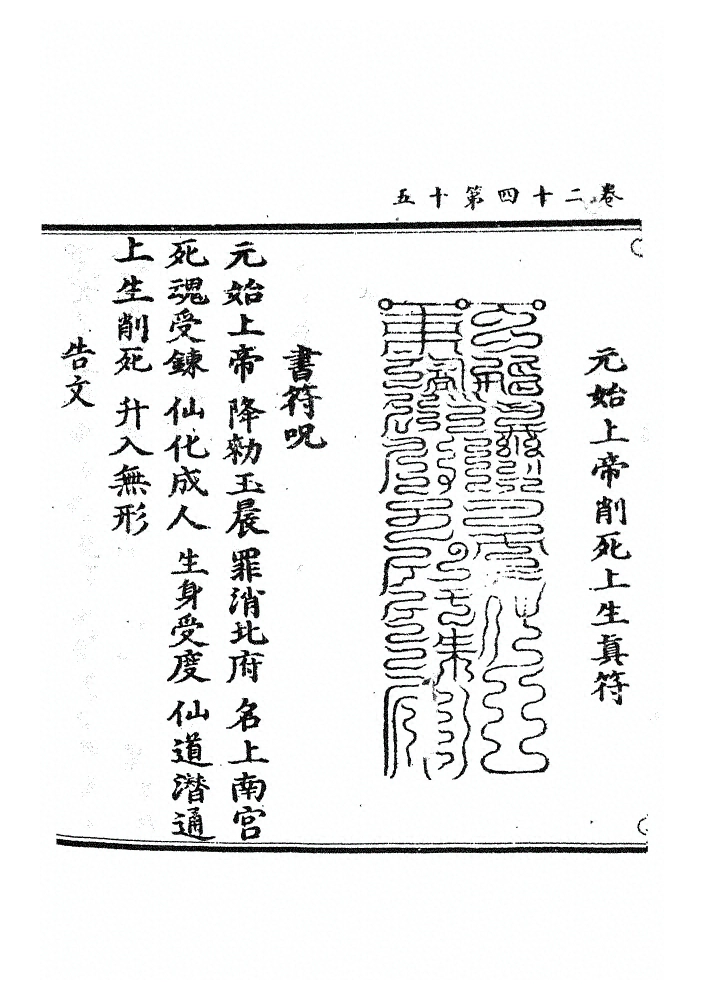 卷二十四第十五
元始上帝削死上生真符
書符呪
元始上帝 降勑玉晨 罪消北府 名上南宮
死魂受鍊 仙化成人 生身受度 仙道潛通
上生削死 升入無形
告文